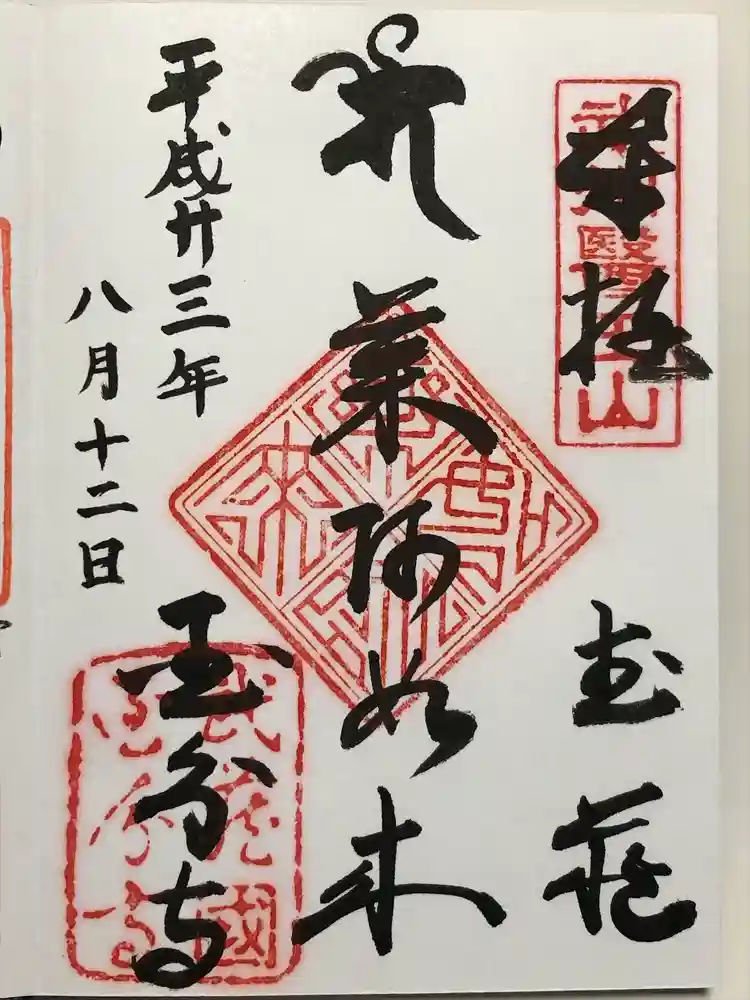 奉拝 武蔵
武州醫王山
薬師如来
国分寺
平成廿三年
八月十二日